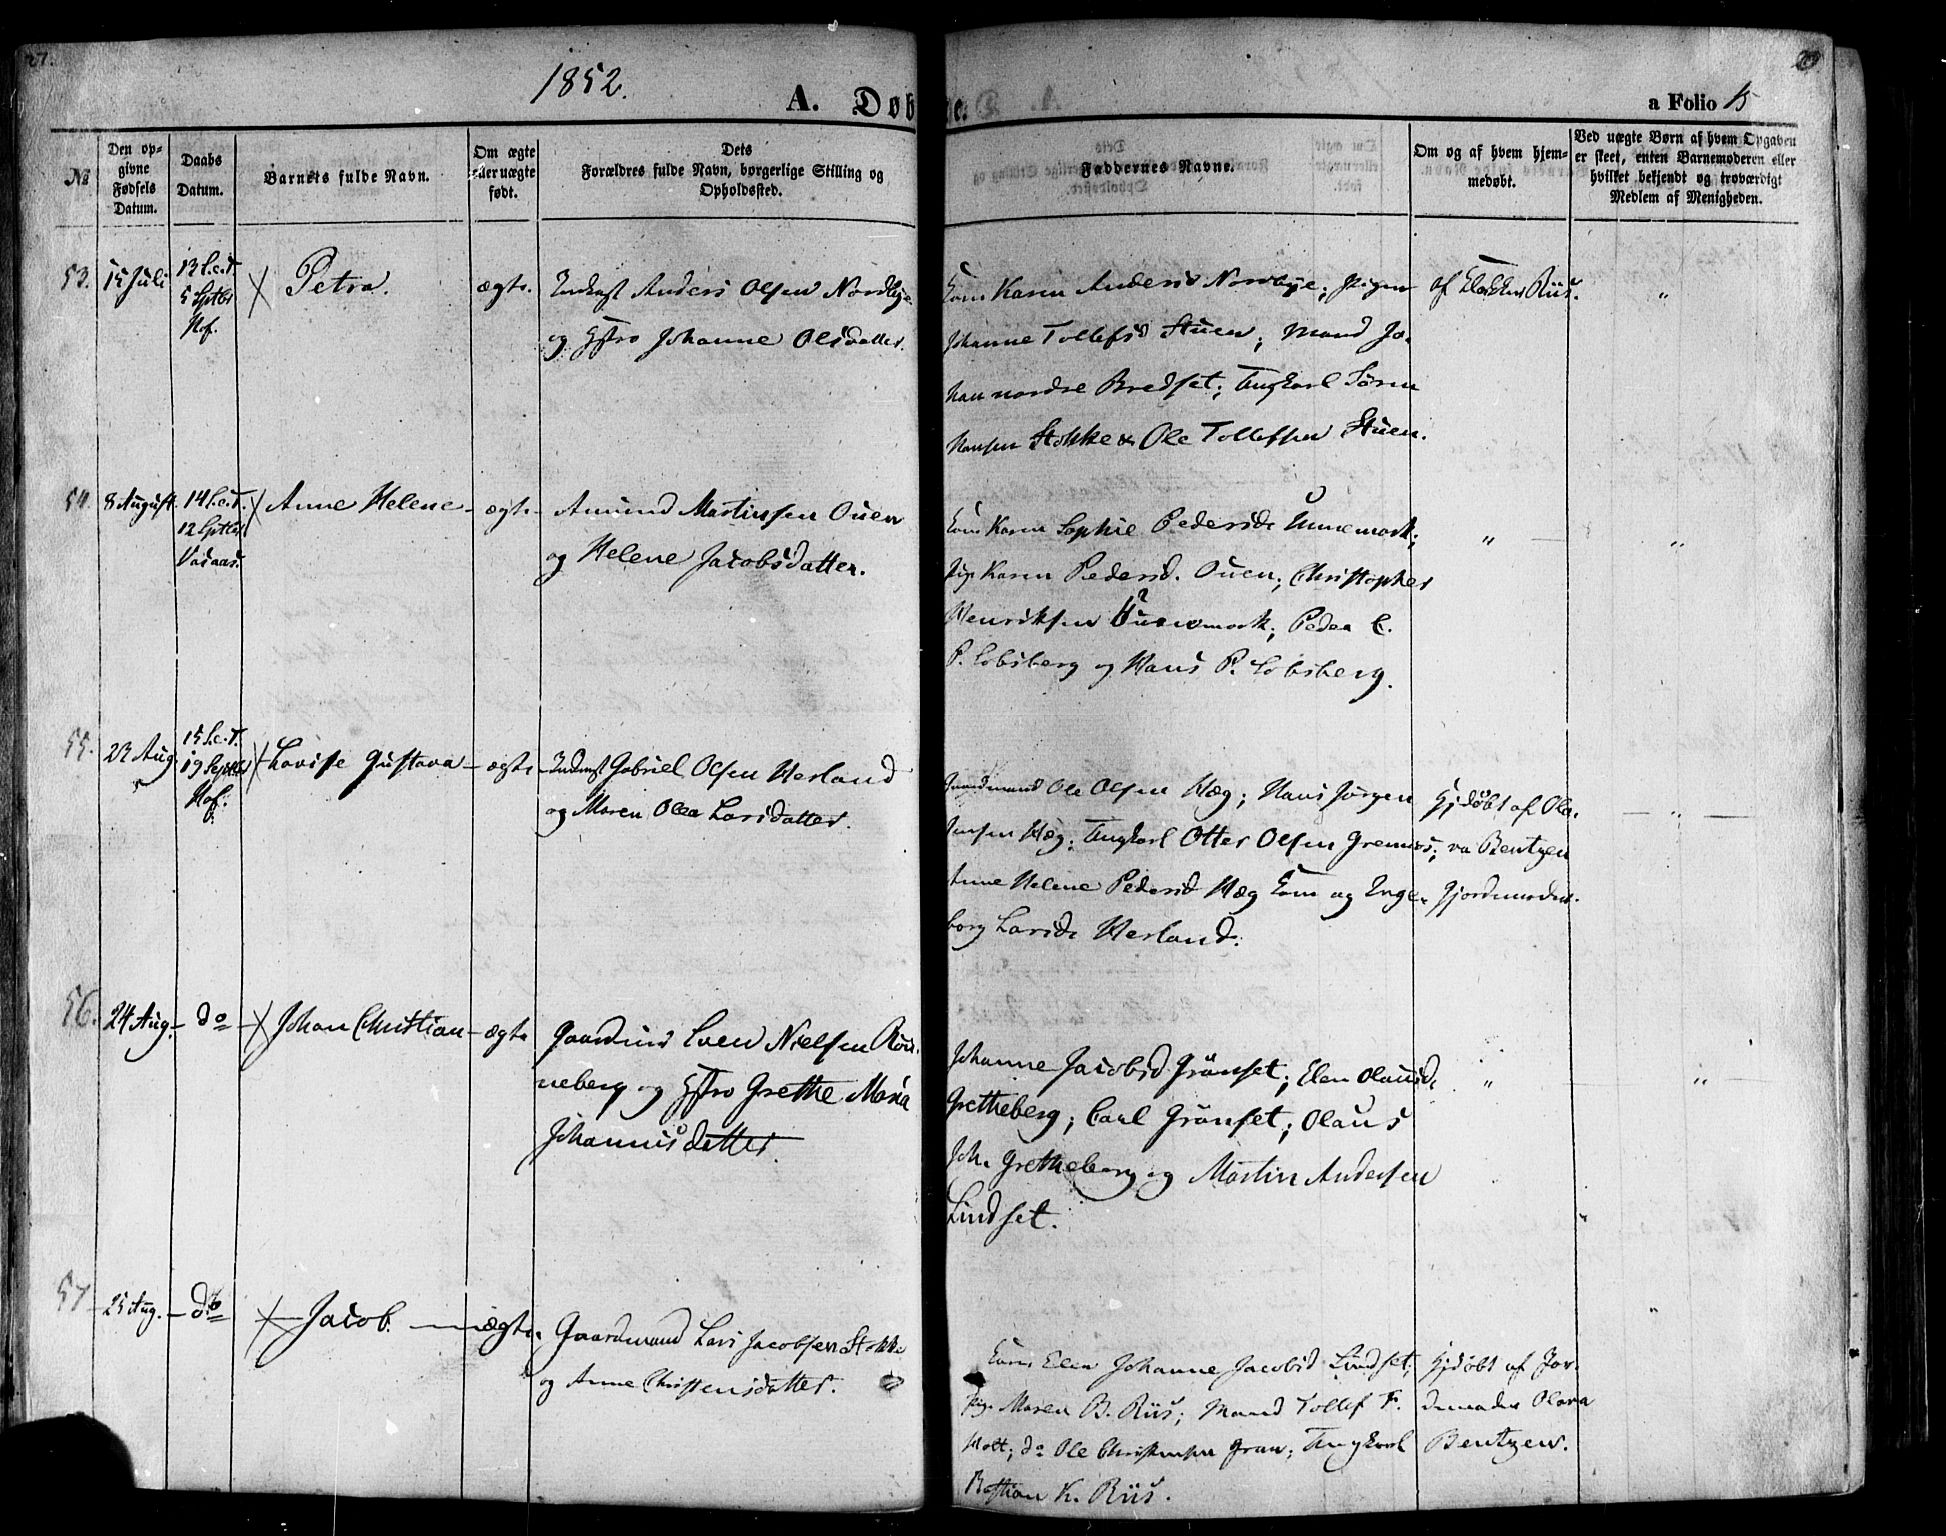 27.
1852.
A. Døb
te.
a Folio 15
№
Den op-
givne
Fødsels
Datum.
Daabs
Datum.
Barnets fulde Navn.
Om ægte
eller uægte
født.
Dets
Forældres fulde Navn, borgerlige Stilling og
Opholdssted.
Faddernes Navne.
Om og af hvem hjem-
medøbt.
Ved uægte Børn af hvem Opgaven
er skeet, enten Barnemoderen eller
hvilket bekjendt og troværdigt
Medlem af Menigheden.
53.
15 Juli
13 S.e.T.
5 Septbr
Hof.
Petra.
ægte.
Inderst Anders Olsen Nordbye
og Hstro Johanne Olsdatter.
Kone Karen Andersd Nordbye; Pigen
Johanne Tollefsd Stuen; Mand Jo-
han nordre Bredset; Ungkarl Søren
Hansen Stokke & Ole Tollefsen Stuen.
af Riis.
"
54.
8 August.
14 S.e.T.
12 Septbr
Vasaas.
Anne Helene
ægte
Amund Martinsen Ouen
og Helene Jacobsdatter.
Kone Karen Sophie Pedersdr Unnemark;
Pige Karen Pedersd. Ouen; Christopher
Henriksen Unnemark; Peder C.
P. Lobsberg og Hans P. Lobsberg.
"
"
55.
22 Aug.
15 S.e.T.
19 Septbr
Hof.
Lovise Gustava
ægte
Inderst Gabriel Olsen Herland
og Maren Olea Larsdatter.
Gaardmand Ole Olsen Hæg; Hans Jørgen
Jensen Hæg; Ungkarl Otter Olsen Grennes;
Anne Helene Pedersd Hæg Kone og Inge-
borg Larsdr Herland.
Hjdøbt af Ola-
va Bentzen
Gjordemoder.
"
56.
24 Aug.
do
Johan Christian
ægte
Gaardmd Even Nielsen Røn-
neberg og Hstro Grethe Maria
Johannisdatter.
Johanne Jacobsd Grönset; Elen Olausd.
Gretheberg; Carl Grönset; Olaus
Joh. Gretheberg og Martin Andersen
Lindset.
"
"
57
25 Aug.
do
Jacob.
ægte.
Gaardmand Lars Jacobsen Stokke
og Anne Christensdatter.
Kone Elen Johanne Jacobsd Lindset;
Pige Maren B. Riis; Mand Tollef F.
Holt; do Ole Christensen Gran; Ungkarl
Bastian K. Riis.
Hjdøbt af Jor-
demoder Olava
Bentzen.
"